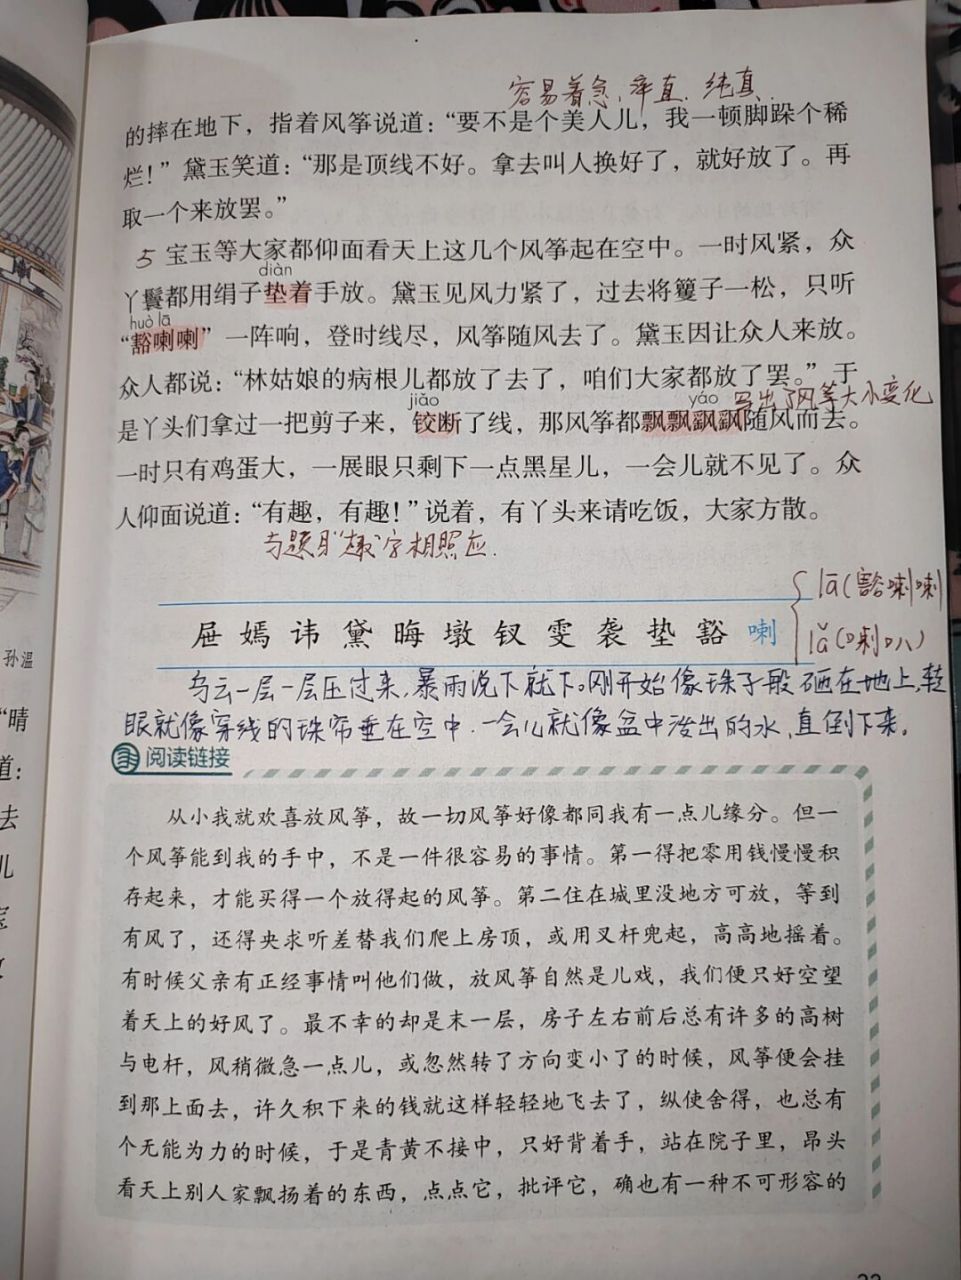 容易着急、率直、纯真.
的摔在地下，指着风筝说道：“要不是个美人儿，我一顿脚跺个稀
烂！”黛玉笑道：“那是顶线不好。拿去叫人换好了，就好放了。再
取一个来放罢。”
5 宝玉等大家都仰面看天上这几个风筝起在空中。一时风紧，众
diàn
丫鬟都用绢子垫着手放。黛玉见风力紧了，过去将籰子一松，只听
huò lā
“豁喇喇”一阵响，登时线尽，风筝随风去了。黛玉因让众人来放。
众人都说：“林姑娘的病根儿都放了去了，咱们大家都放了罢。”于
jiǎo yáo 写出了风筝大小变化
是丫头们拿过一把剪子来，铰断了线，那风筝都飘飘飖飖随风而去。
一时只有鸡蛋大，一展眼只剩下一点黑星儿，一会儿就不见了。众
人仰面说道：“有趣，有趣！”说着，有丫头来请吃饭，大家方散。
与题目“趣”字相照应.
lā(豁喇喇
屉 嫣 讳 黛 晦 墩 钗 雯 袭 垫 豁 喇
lǎ(喇叭)
乌云一层一层压过来,暴雨说下就下。刚开始像珠子般砸在地上,转
眼就像穿线的珠帘垂在空中.一会儿就像盆中泼出的水,直倒下来。
阅读链接
从小我就欢喜放风筝，故一切风筝好像都同我有一点儿缘分。但一
个风筝能到我的手中，不是一件很容易的事情。第一得把零用钱慢慢积
存起来，才能买得一个放得起的风筝。第二住在城里没地方可放，等到
有风了，还得央求听差替我们爬上房顶，或用叉杆兜起，高高地摇着。
有时候父亲有正经事情叫他们做，放风筝自然是儿戏，我们便只好空望
着天上的好风了。最不幸的却是末一层，房子左右前后总有许多的高树
与电杆，风稍微急一点儿，或忽然转了方向变小了的时候，风筝便会挂
到那上面去，许久积下来的钱就这样轻轻地飞去了，纵使舍得，也总有
个无能为力的时候，于是青黄不接中，只好背着手，站在院子里，昂头
看天上别人家飘扬着的东西，点点它，批评它，确也有一种不可形容的
孙温
“晴
道：
去
儿